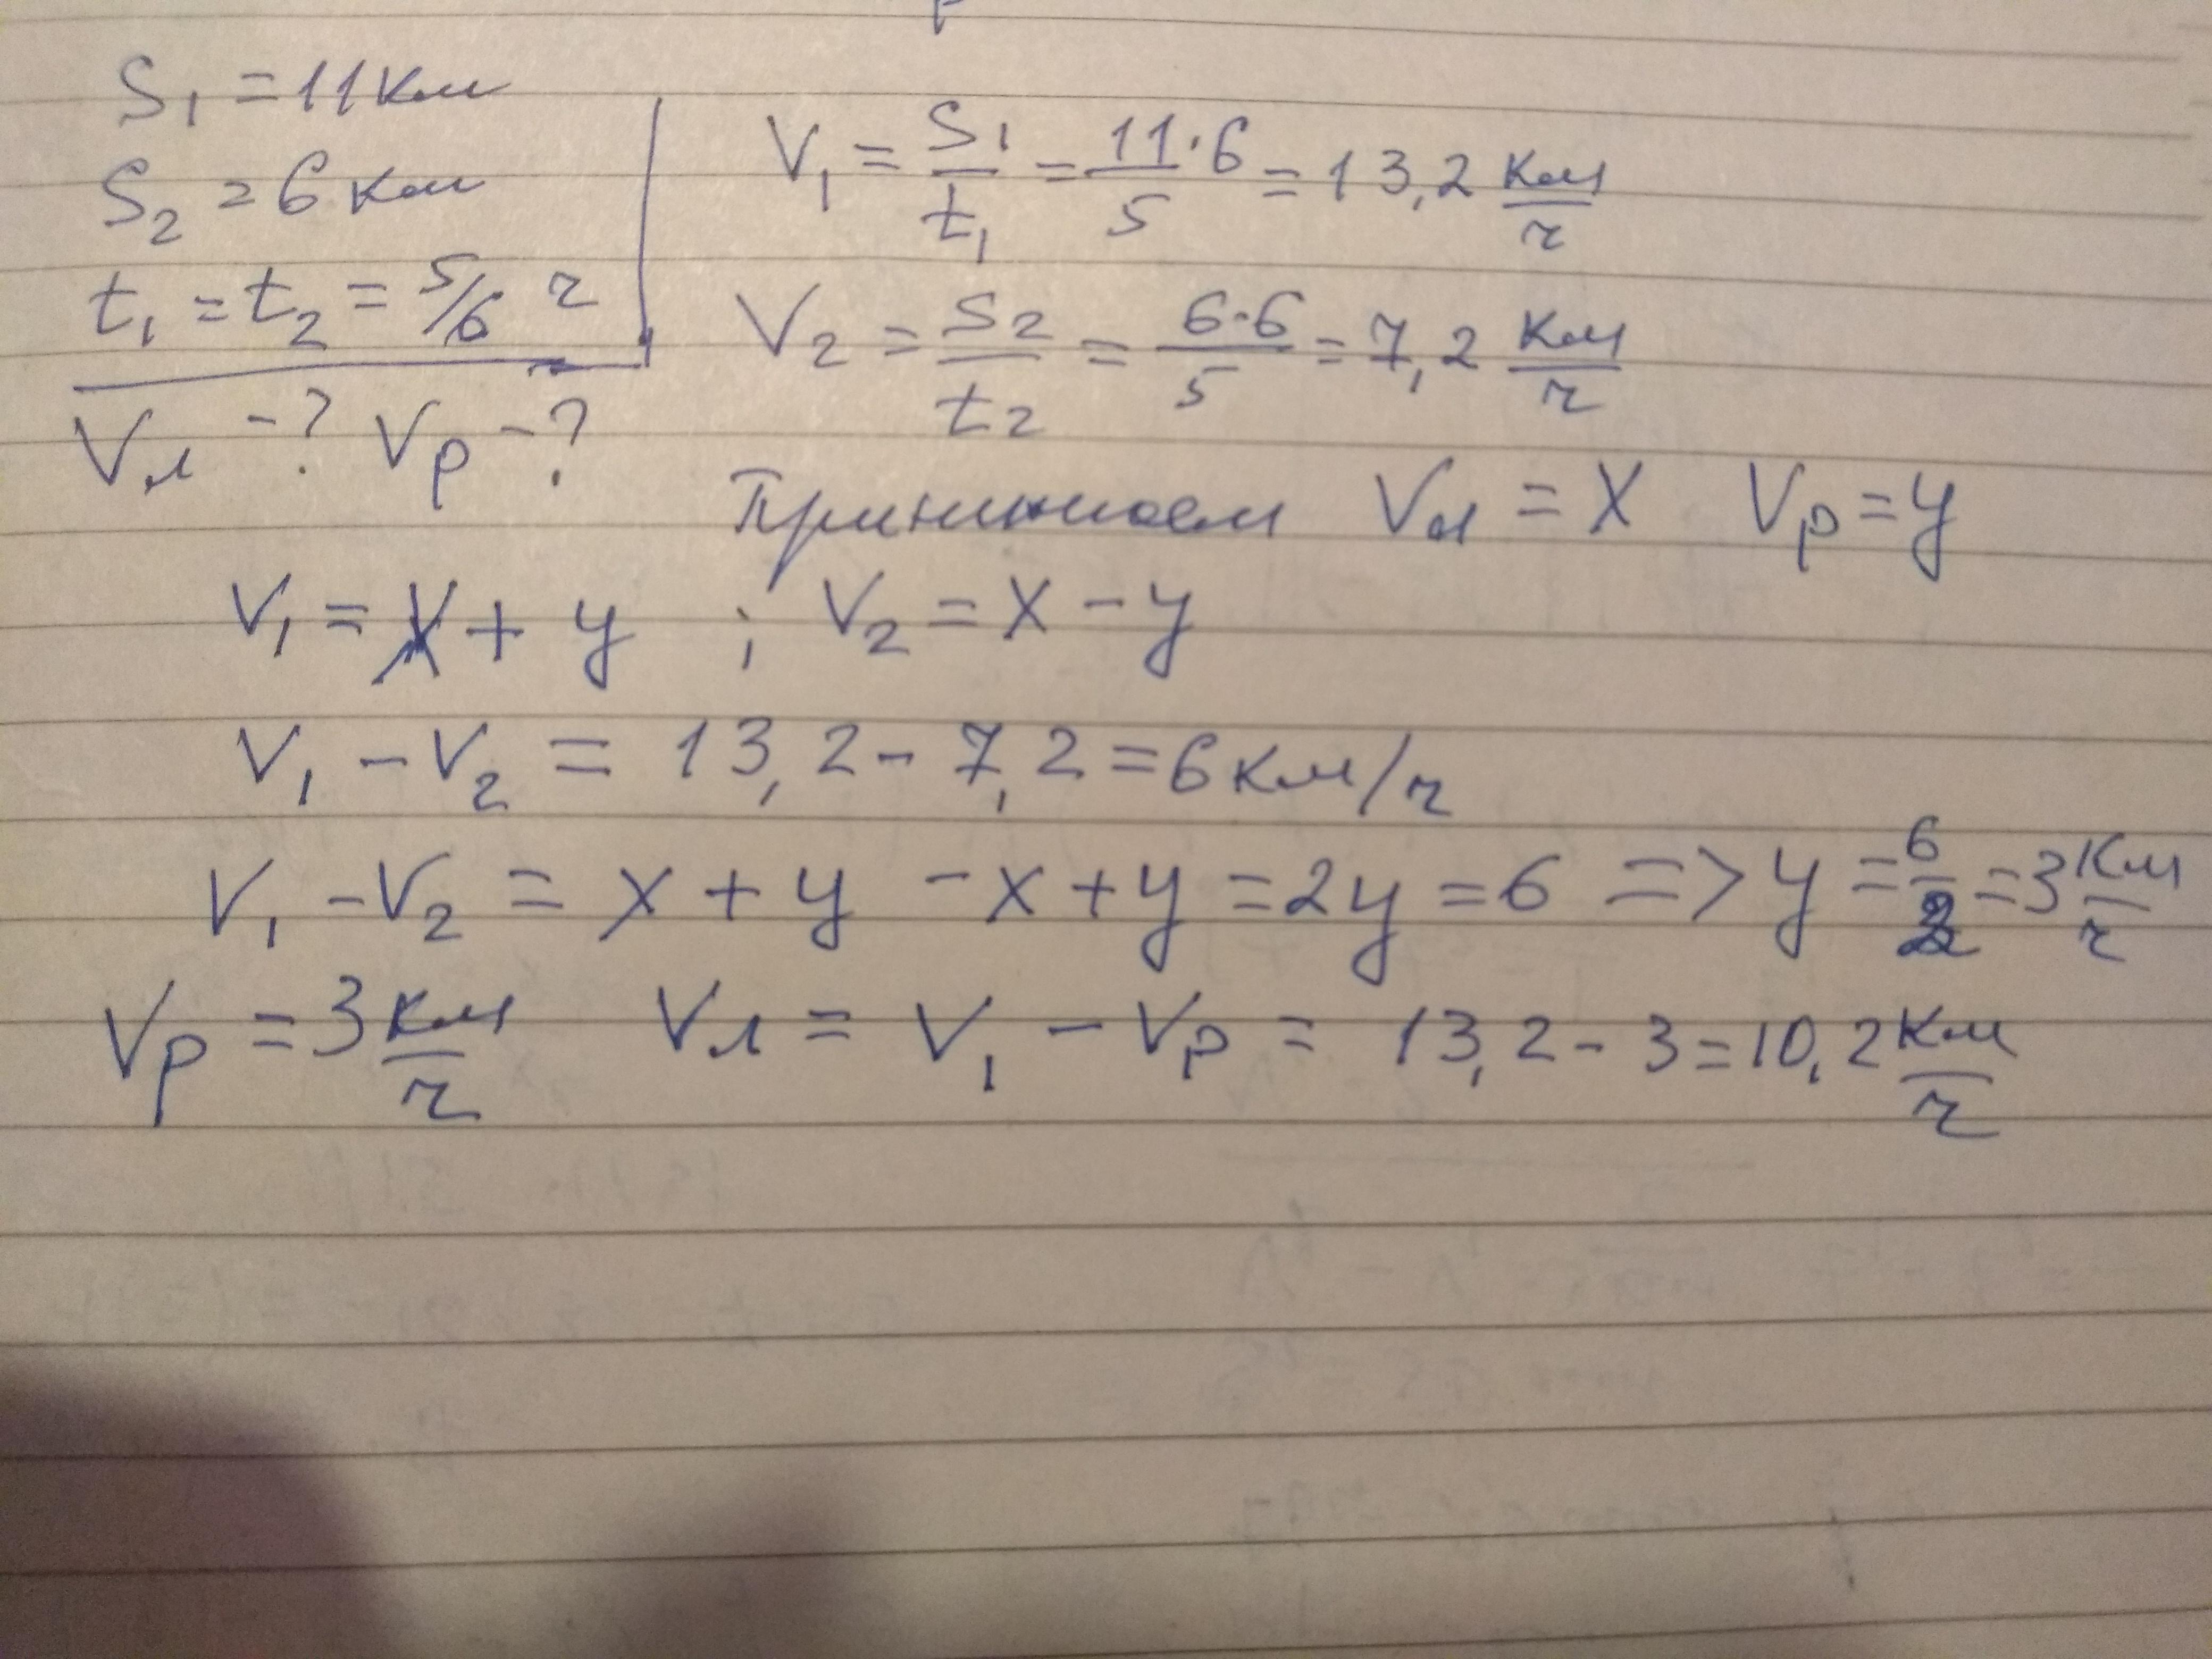 S₁ = 11 км
S₂ = 6 км
t₁ = t₂ = 5/6 ч
Vл - ? Vр - ?
V₁ = S₁/t₁ = 11·6/5 = 13,2 км/ч
V₂ = S₂/t₂ = 6·6/5 = 7,2 км/ч
Принимаем Vл = x Vр = y
V₁ = x + y ; V₂ = x - y
V₁ - V₂ = 13,2 - 7,2 = 6 км/ч
V₁ - V₂ = x + y - x + y = 2y = 6 => y = 6/2 = 3 км/ч
Vр = 3 км/ч Vл = V₁ - Vр = 13,2 - 3 = 10,2 км/ч